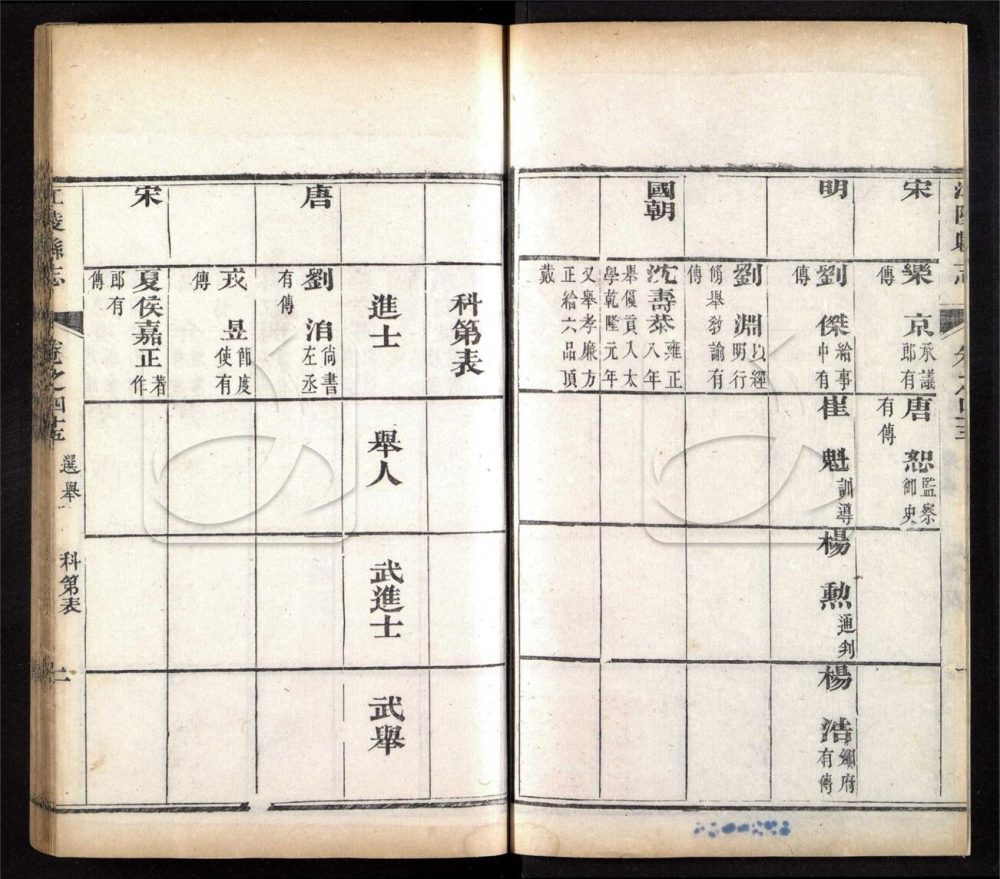 宋
樂京承議郎有傳
唐恕監察御史有傳
明
劉傑給事中有傳
崔魁訓導
楊勲通判
楊浩府有傳
劉淵以經明行脩舉教諭有傳
國朝
沈壽雍正八年舉優貢入太學乾隆元年又舉孝廉方正給六品頂戴
科第表
進士
舉人
武進士
武舉
唐
劉洎尚書左丞有傳
戎昱節度使有傳
宋
夏侯嘉正著作郎有傳
江陵縣志
選舉
科第表